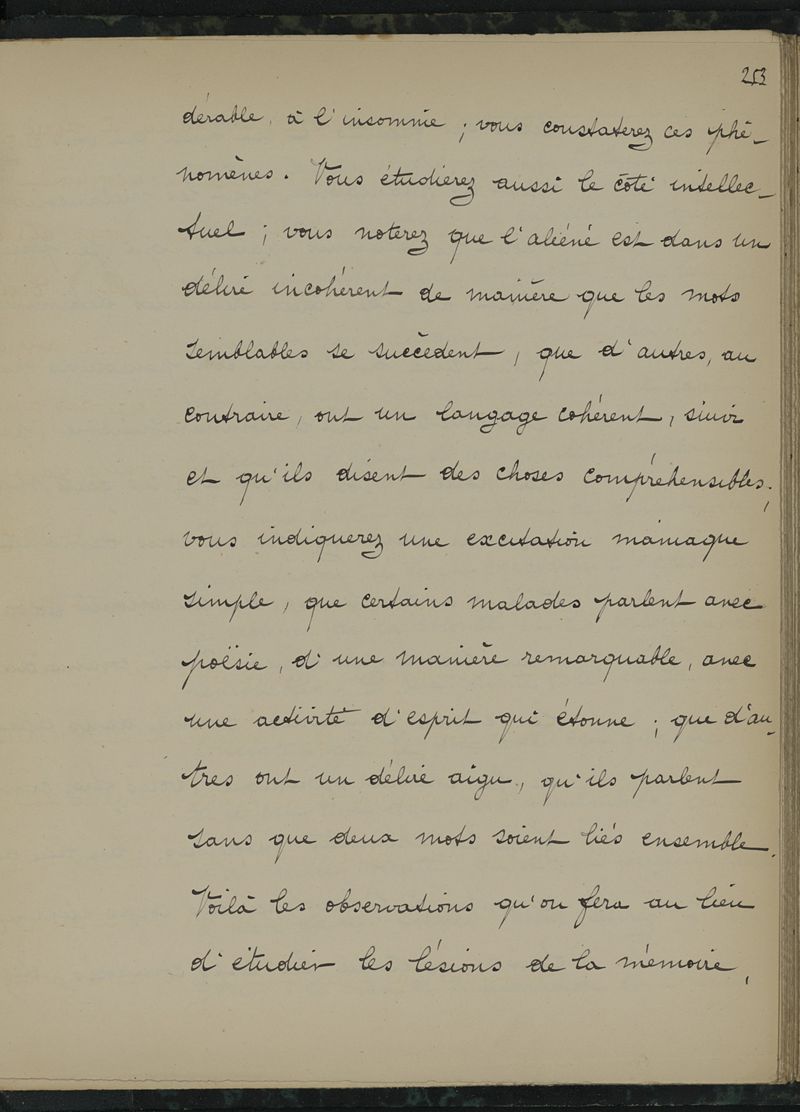 253
dérable, à l'insomnie ; vous constaterez ces phé-
nomènes. Vous étudierez aussi le côté intellec-
tuel ; vous noterez que l'aliéné est dans un
délire incohérent de manière que les mots
semblables se succèdent, que d'autres, au
contraire, ont un langage cohérent, suivi
et qu'ils disent des choses compréhensibles ;
vous indiquerez une excitation maniaque
simple, que certains malades parlent avec
poësie, d'une manière remarquable, avec
une activité d'esprit qui étonne ; que d'au-
tres ont un délire aigu, qu'ils parlent
sans que deux mots soient liés ensemble.
Voilà les observations qu'on fera au lieu
d'étudier les lésions de la mémoire,